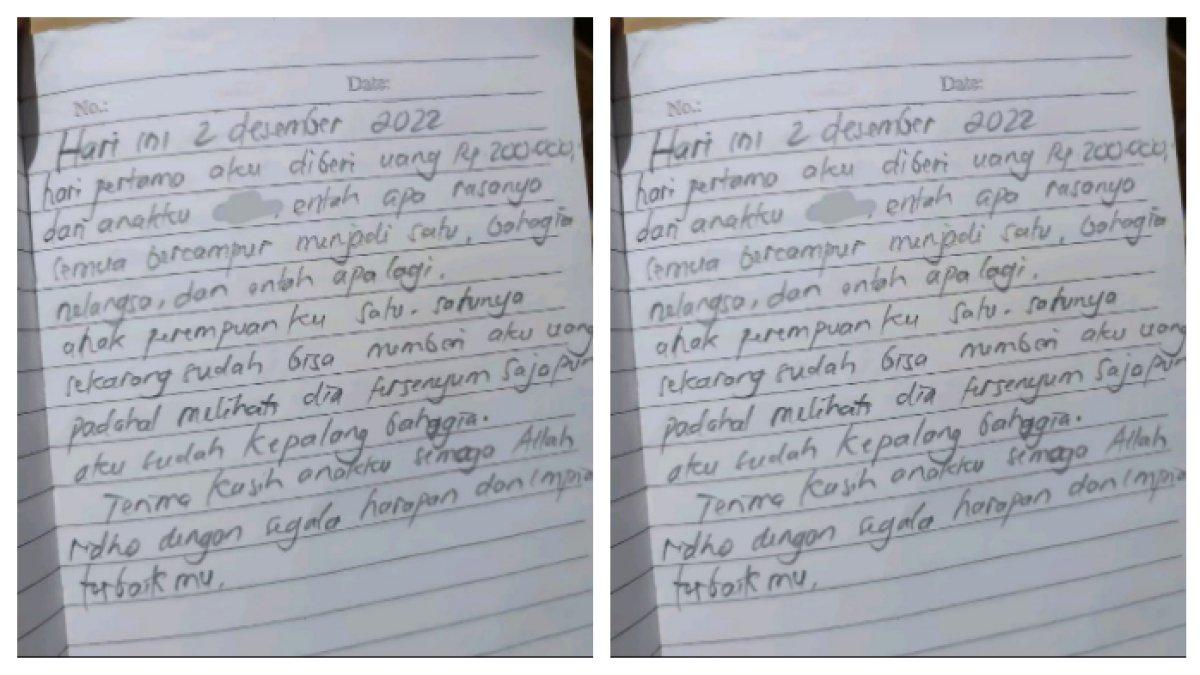 No.:
Date:
Hari ini 2 desember 2022
hari pertama aku diberi uang Rp 200.000,
dari anakku , entah apa rasanya
semua bercampur menjadi satu, bahagia
nelangsa, dan entah apa lagi.
anak perempuan ku satu-satunya
sekarang sudah bisa memberi aku uang
padahal melihat dia tersenyum saja pun
aku sudah kepalang bahagia.
Terima kasih anakku semoga Allah
ridho dengan segala harapan dan impia
terbaik mu.
No.:
Date:
Hari ini 2 desember 2022
hari pertama aku diberi uang Rp 200.000,
dari anakku , entah apa rasanya
semua bercampur menjadi satu, bahagia
nelangsa, dan entah apa lagi.
anak perempuan ku satu-satunya
sekarang sudah bisa memberi aku uang
padahal melihat dia tersenyum saja pun
aku sudah kepalang bahagia.
Terima kasih anakku semoga Allah
ridho dengan segala harapan dan impia
terbaik mu.